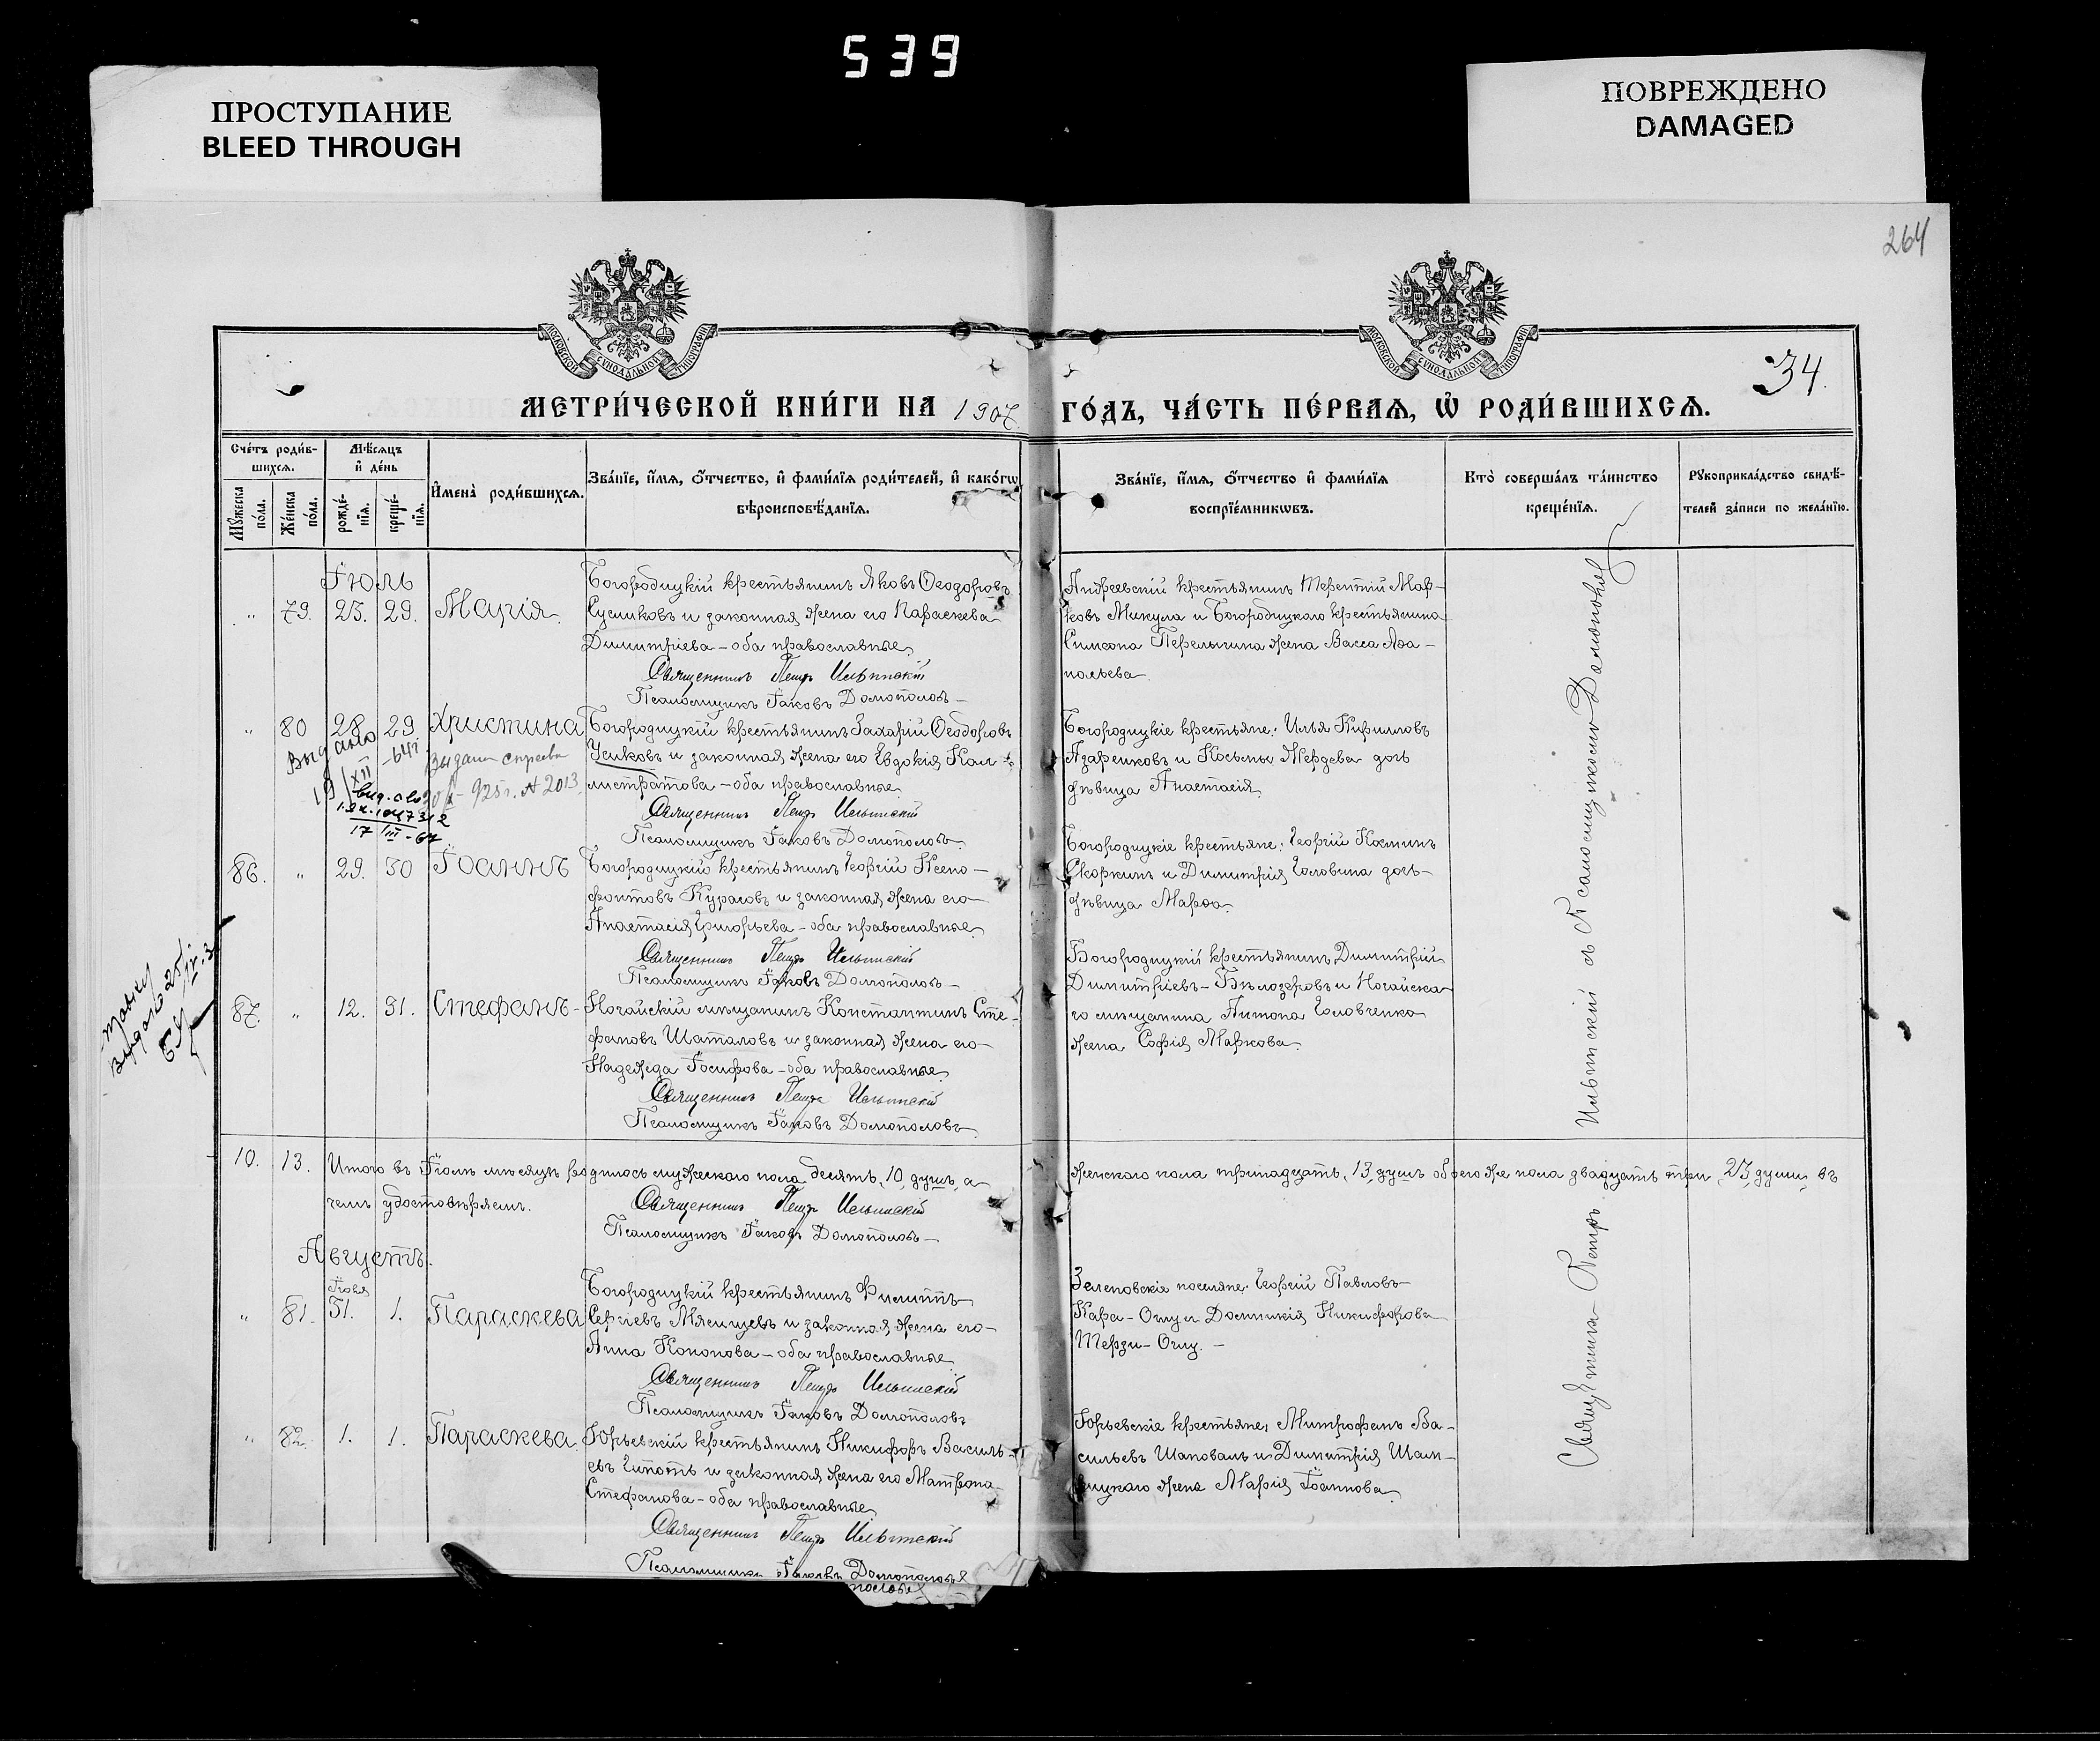 539
ПРОСТУПАНИЕ
BLEED THROUGH
ПОВРЕЖДЕНО
DAMAGED
264
МОСКОВСКОЙ СИНОДАЛЬНОЙ ТИПОГРАФІИ
МОСКОВСКОЙ СИНОДАЛЬНОЙ ТИПОГРАФІИ
34.
МЕТРИ́ЧЕСКОЙ КНИ́ГИ НА 1907
ГО́ДЪ, ЧА́СТЬ ПЕ́РВАѦ, Ѽ РОДИ́ВШИХСѦ.
Сче́тъ роди́в-
шихсѧ.
Мѣ́сѧцъ
и҆ де́нь
Мꙋ́жеска по́ла.
Же́нска по́ла.
рожде́-
нїѧ.
креще́-
нїѧ.
И҆мена̀ роди́вшихсѧ.
Зва́нїе, и҆́мѧ, ѻ҆́тчество, и҆ фами́лїѧ роди́телей, и҆ како́гѡ
вѣроисповѣ́данїѧ.
Зва́нїе, и҆́мѧ, ѻ҆́тчество и҆ фами́лїѧ
воспрїе́мникѡвъ.
Кто̀ соверша́лъ та́инство
креще́нїѧ.
Рꙋкоприкла́дство свидѣ́-
телей за́писи по жела́нїю.
Іюль
" 79. 23. 29. Марія.
Богородицкій крестьянинъ Яковъ Ѳеодоровъ
Сусликовъ и законная жена его Параскева
Димитріева - оба православные.
Священникъ Петръ Ильинскій
Псаломщикъ Іаковъ Домополовъ
Андреевскій крестьянинъ Терентій Мар-
ковъ Микула и Богородицкаго крестьянина
Симеона Перелыгина жена Васса Аѳа-
нольева.
" 80 28. 29. Христина
Богородицкій крестьянинъ Захарій Ѳеодоровъ
Усиковъ и законная жена его Евдокія Кал-
листратова - оба православные.
Священникъ Петръ Ильинскій
Псаломщикъ Іаковъ Домополовъ
Богородицкіе крестьяне: Илья Кирилловъ
Азаренковъ и Косьмы Жердева дочь
дѣвица Анастасія.
Выдано
19/XII -64г
Выдана справка
- 925 г. № 2013.
17/III - 67
86. " 29. 30 Іоаннъ
Богородицкій крестьянинъ Георгій Ксено-
фонтовъ Курасовъ и законная жена его
Анастасія Григорьева - оба православные.
Священникъ Петръ Ильинскій
Псаломщикъ Іаковъ Домополовъ
Богородицкіе крестьяне: Георгій Косминъ
Скоркинъ и Димитрія Головина дочь
дѣвица Марѳа.
87. " 12. 31. Стефанъ
Ногайскій мѣщанинъ Константинъ Сте-
фановъ Шаталовъ и законная жена его
Надежда Іосифова - оба православные.
Священникъ Петръ Ильинскій
Псаломщикъ Іаковъ Домополовъ
Богородицкій крестьянинъ Димитрій
Димитріевъ - Бѣлозеровъ и Ногайска-
го мѣщанина Антона Головченко
жена Софія Маркова.
10. 13. Итого въ Іюлѣ мѣсяцѣ родилось мужескаго пола десять, 10, душъ, а женскаго пола тринадцать, 13, душъ обоего же пола двадцать три, 23, души, въ
чемъ удостовѣряемъ.
Священникъ Петръ Ильинскій
Псаломщикъ Іаковъ Домополовъ
Августъ.
Іюля
" 81. 31. 1. Параскева
Богородицкій крестьянинъ Филиппъ
Сергіевъ Мясищевъ и законная жена его
Анна Кононова - оба православные.
Священникъ Петръ Ильинскій
Псаломщикъ Іаковъ Домополовъ
Зеленовскіе поселяне: Георгій Павловъ
Кара-Оглу и Домникія Никифорова
Терзи-Оглу. -
" 82. 1. 1. Параскева.
Юрьевскій крестьянинъ Никифоръ Василь-
евъ и законная жена его Матрона
Стефанова - оба православные.
Священникъ Петръ Ильинскій
Псаломщикъ Іаковъ Домополовъ
Юрьевскіе крестьяне, Митрофанъ Ва-
сильевъ Шаповалъ и Димитрія
жена Марія Іоаннова.
Священникъ Петръ Ильинскій съ Псаломщикомъ Домополовъ